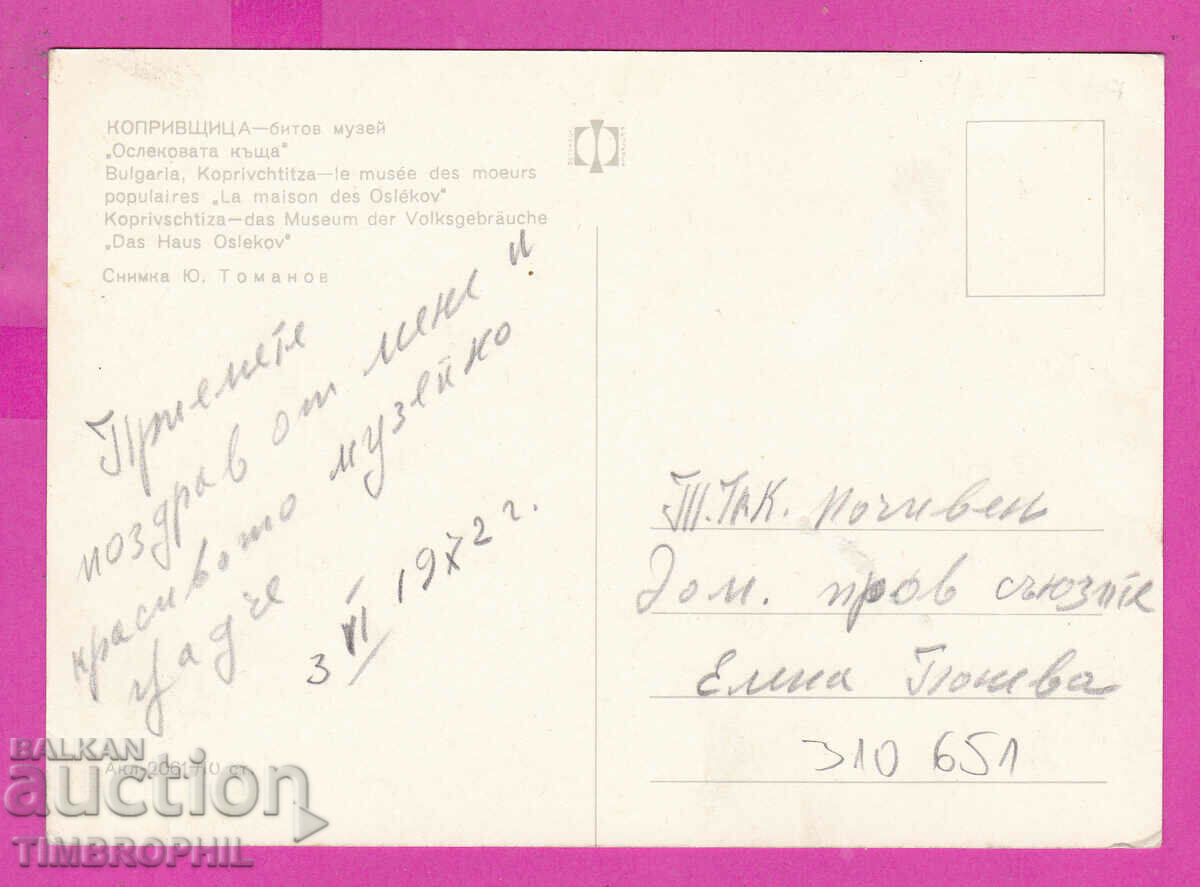 КОПРИВЩИЦА—битов музей
„Ослековата къща"
Bulgaria, Koprivchtitza—le musée des moeurs
populaires „La maison des Oslékov"
Koprivschtiza—das Museum der Volksgebräuche
„Das Haus Oslekov"
Снимка Ю. Томанов
Приемете
поздрав от мене и
красивото музейно
градче
3 VI 1972 г.
Почивен
Дом. проф съюзите
Елена
310 651
BALKAN
auction
TIMBROPHIL